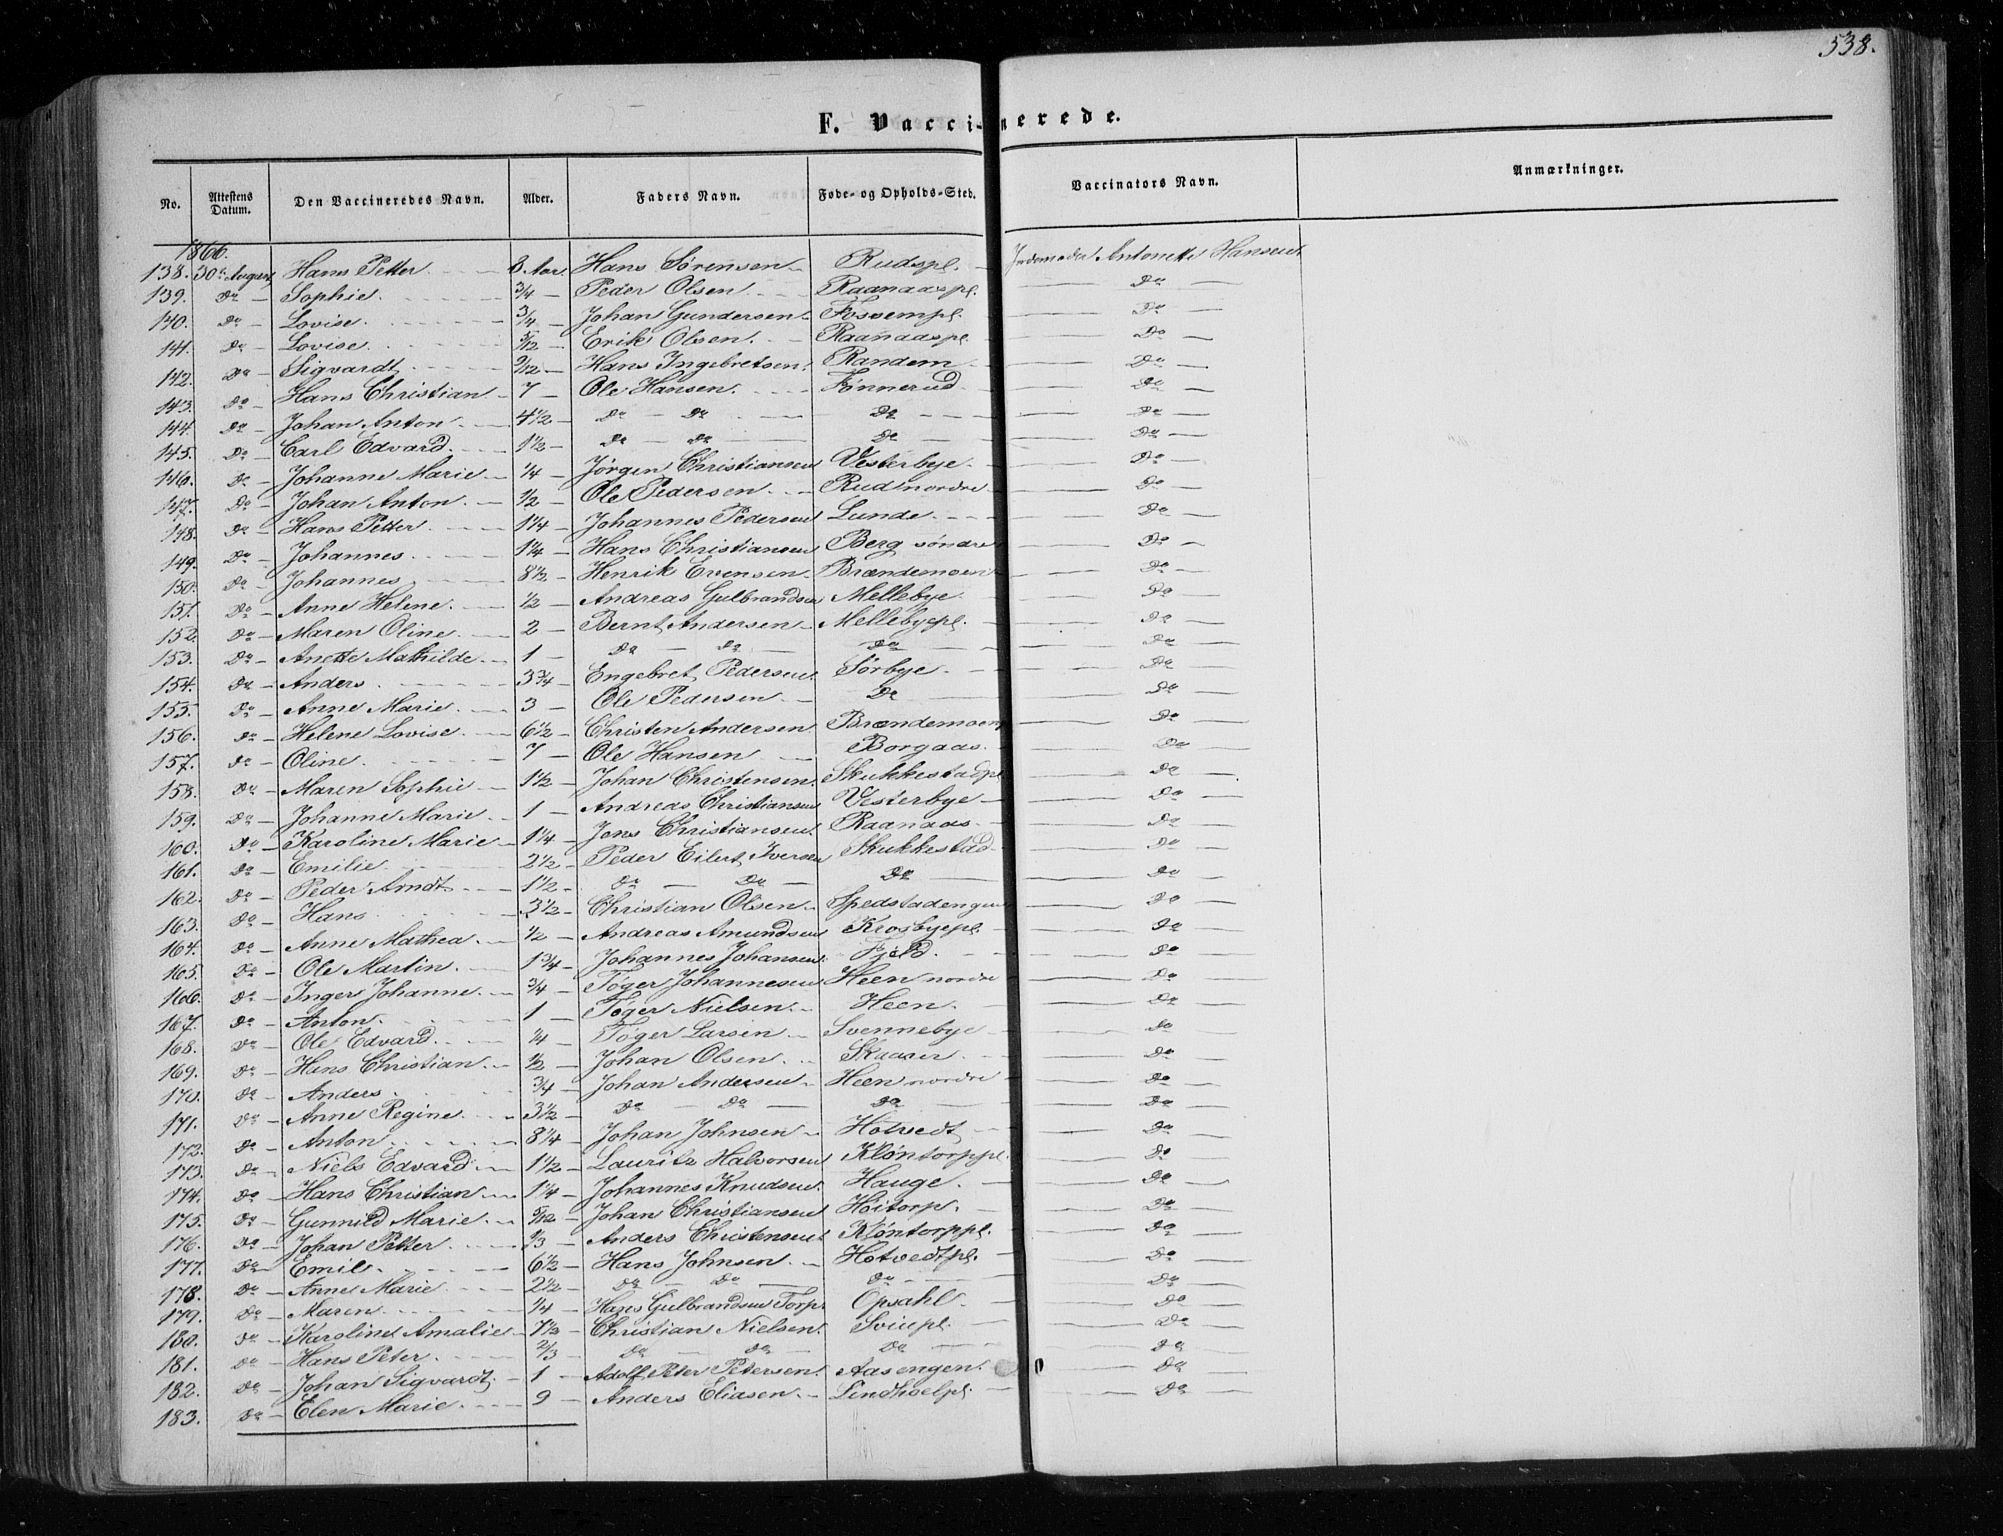 538.
F. Vaccinerede.
No. Attestens Datum. Den Vaccineredes Navn. Alder. Faders Navn. Føde- og Opholds-Sted. Vaccinators Navn. Anmærkninger.
1866.
138. 30te August Hans Petter 8 Aar. Hans Sørensen Rudspl. Jordemoder Antonette Hansen
139. Do Sophie. 3/4 Peder Olsen Raanaaspl. Do
140. Do Lovise. 3/4 Johan Gundersen Fosvempl. Do
141. Do Lovise. 5/12 Erik Olsen. Raanaaspl. Do
142. Do Sigvardt 9/12 Hans Ingebretsen. Randem Do
143. Do Hans Christian 7 Ole Hansen. Fønnerud Do
144. Do Johan Anton 4 1/2 Do Do Do Do
145. Do Carl Edvard. 1 1/2 Do Do Do Do
146. Do Johanne Marie 1/4 Jørgen Christiansen Vesterbye. Do
147. Do Johan Anton 1/2 Ole Pedersen Rud nordre Do
148. Do Hans Petter 1 1/4 Johannes Pedersen Lunde. Do
149. Do Johannes. 1 1/4 Hans Christiansen Berg søndre Do
150. Do Johannes 8 1/2 Henrik Evensen Brændemoen Do
151. Do Anne Helene. 1/2 Andreas Gulbrandsen Mellebye. Do
152. Do Maren Oline 2 Bernt Andersen Mellebyepl. Do
153. Do Anette Mathilde. 1 Do Do Do Do
154. Do Anders 3 3/4 Engebret Pedersen Sørbye Do
155. Do Anne Marie 3 Ole Pedersen Do Do
156. Do Helene Lovise. 6 1/2 Christen Andersen Brændemoen Do
157. Do Oline 7 Ole Hansen Borgaas. Do
158. Do Maren Sophie 1 1/2 Johan Christensen. Skukkestadpl Do
159. Do Johanne Marie 1 Andreas Christiansen Vesterbye Do
160. Do Karoline Marie 1 1/4 Jens Christiansen. Raanaas. Do
161. Do Emilie 2 1/2 Peder Eilert Iversen Skukkestad Do
162. Do Peder Arndt 1 1/2 Do Do Do Do
163. Do Hans 3 1/2 Christian Olsen Spedstadengen Do
164. Do Anne Mathea 1/2 Andreas Amundsen Krosbyepl. Do
165. Do Ole Martin. 1 3/4 Johannes Johansen Fjeld. Do
166. Do Inger Johanne 3/4 Tøger Johannesen Heen nordre Do
167. Do Anton 1 Tøger Nielsen. Heen. Do
168. Do Ole Edvard. 1/4 Tøger Larsen Svennebye Do
169. Do Hans Christian 1/2 Johan Olsen Skaaser Do
170. Do Anders. 3/4 Johan Andersen Heen nordre Do
171. Do Anne Regine 3 1/2 Do Do Do Do
172. Do Anton 8 1/4 Johan Johnsen Hotvedt Do
173. Do Niels Edvard 1 1/2 Lauritz Halvorsen Kløntorppl. Do
174. Do Hans Christian 1 1/4 Johannes Knudsen. Hauge. Do
175. Do Gunnild Marie 5/12 Johan Christiansen Hoitorp. Do
176. Do Johan Petter 1/3 Anders Christensen Kløntorppl. Do
177. Do Emil 6 1/2 Hans Johnsen. Hotvedtpl. Do
178. Do Anne Marie 2 1/2 Do Do Do Do
179. Do Maren 1/4 Hans Gulbrandsen Torp. Opsahl Do
180. Do Karoline Amalie 7 1/2 Christian Nielsen. Sviupl. Do
181. Do Hans Peter. 2/3 Do Do Do Do
182. Do Johan Sigvardt. 1 Adolf Peter Petersen Aasengen. Do
183. Do Elen Marie 9 Anders Eliasen. Lindhoelpl. Do